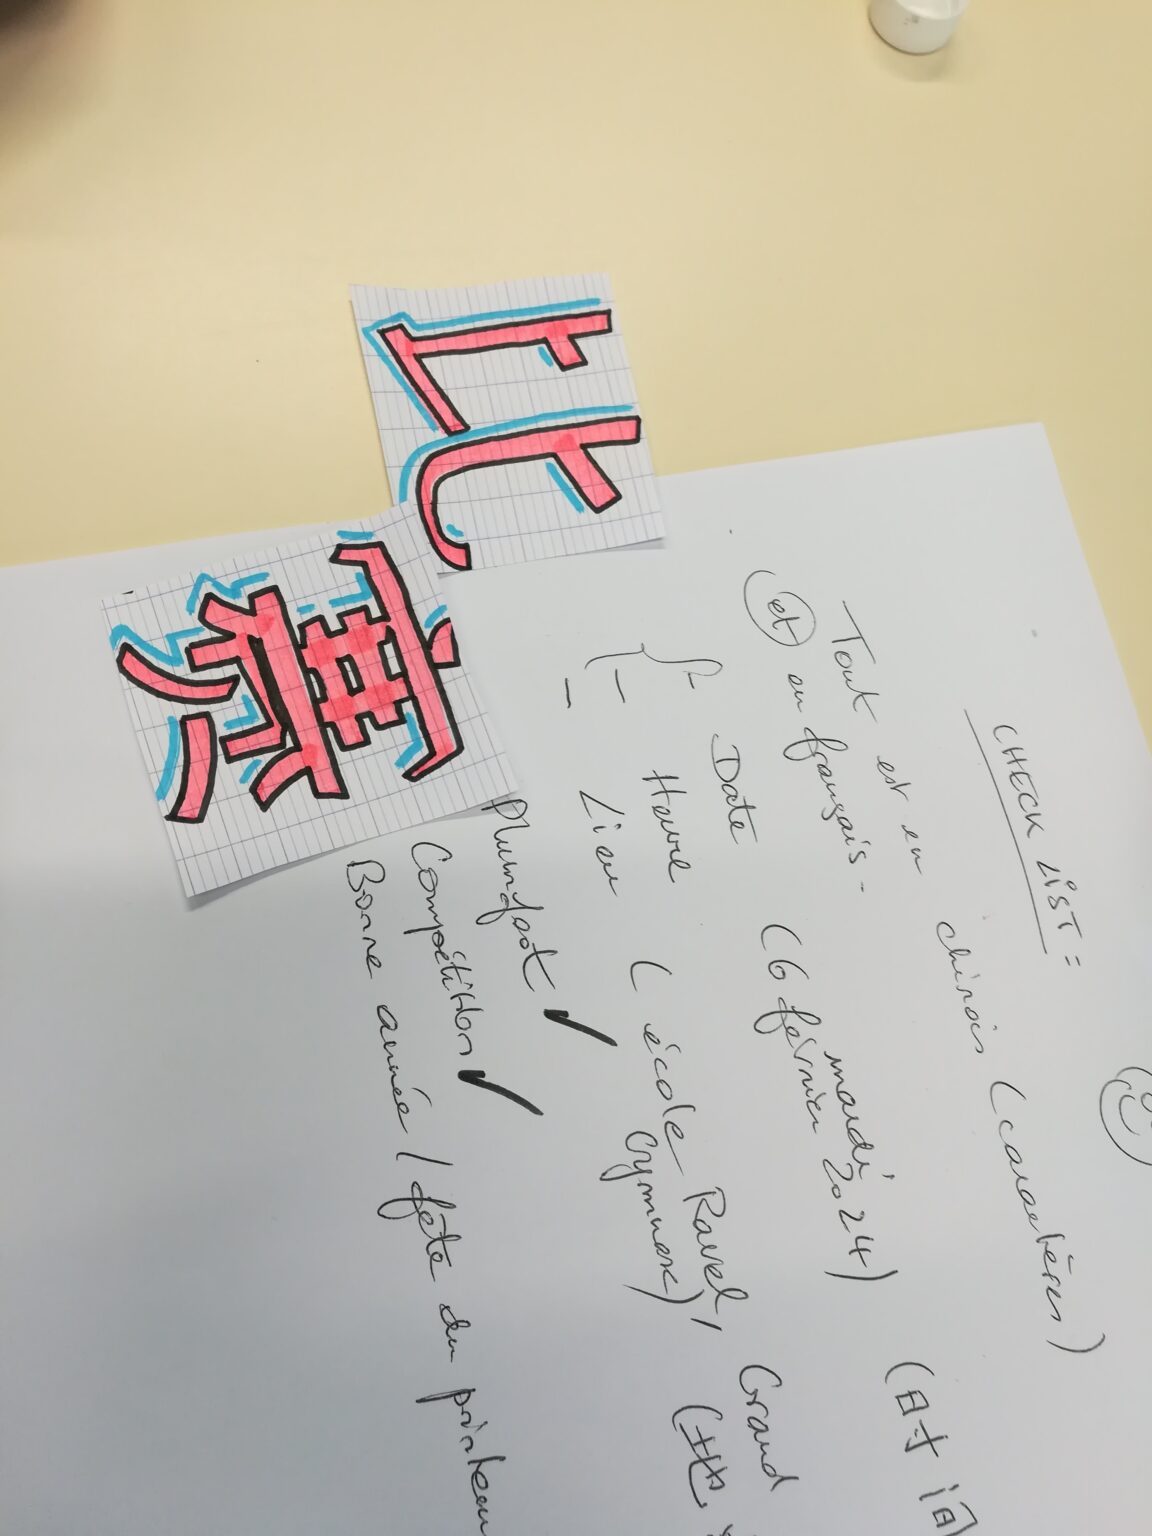 比
赛
CHECK LIST =
Tout est en chinois (caractères)
et en français.
- Date (mardi 6 février 2024) (时间
- Heure
- Lieu (école Ravel, Grand Gymnase) (地
Plumfoot ✓
Compétition ✓
Bonne année / fête du printem